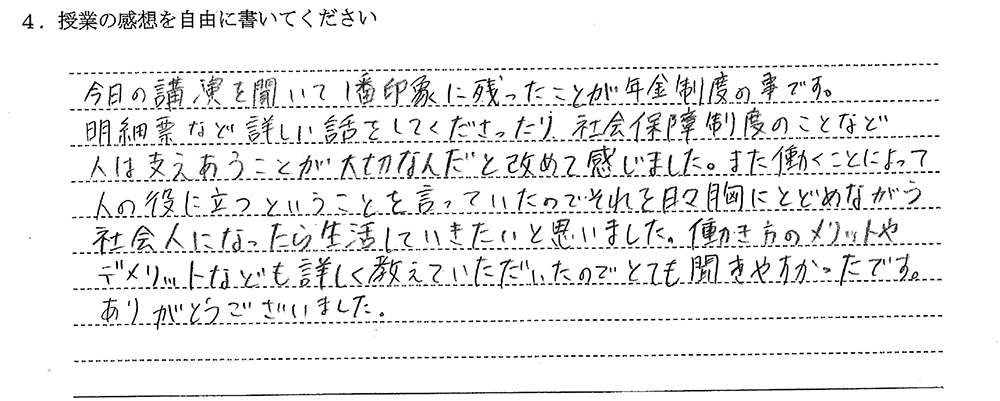 4. 授業の感想を自由に書いてください
今日の講演を聞いて1番印象に残ったことが年金制度の事です。
明細票など詳しい話をしてくださったり、社会保障制度のことなど
人は支えあうことが大切なんだと改めて感じました。また働くことによって
人の役に立つということを言っていたのでそれを日々胸にとどめながら
社会人になったら生活していきたいと思いました。働き方のメリットや
デメリットなども詳しく教えていただいたのでとても聞きやすかったです。
ありがとうございました。